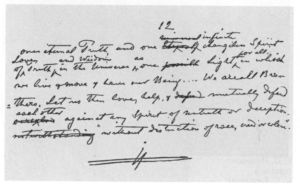 12.
infinite
one eternal Truth, and one changeless Spirit
Love, and Wisdom as for all,
of Truth, in the Universe, & one Light, in which
we live & move & have our Being.... We are all Bro-
thers. Let us then love, help, & mutually defend
each other against any Spirit of untruth or deception,
without distinction of race, creed or color.